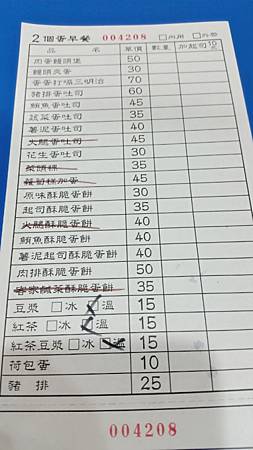 2個蛋早餐 004208 □內用 □外帶
品名 單價 數量 加起司10元
肉蛋饅頭堡 50
饅頭夾蛋 30
蛋蛋打嗝三明治 70
豬排蛋吐司 60
鮪魚蛋吐司 45
蔬菜蛋吐司 35
薯泥蛋吐司 45
火腿蛋吐司 45
花生蛋吐司 35
菜頭粿 35
蘿蔔糕加蛋 45
原味酥脆蛋餅 30
起司酥脆蛋餅 35
火腿酥脆蛋餅 40
鮪魚酥脆蛋餅 40
薯泥起司酥脆蛋餅 40
肉排酥脆蛋餅 50
客家鹹菜酥脆蛋餅 35
豆漿 □冰 □溫 15
紅茶 □冰 □溫 15
紅茶豆漿 □冰 □溫 15
荷包蛋 10
豬排 25
004208